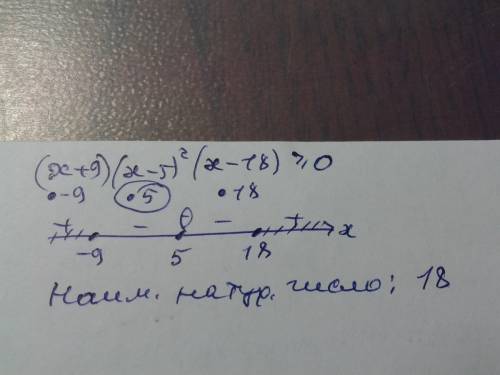 (x+9)(x-5)²(x-18)⩾0
•-9 •5 •18
+ - - + x
-9 5 18
Наим. натур. число: 18